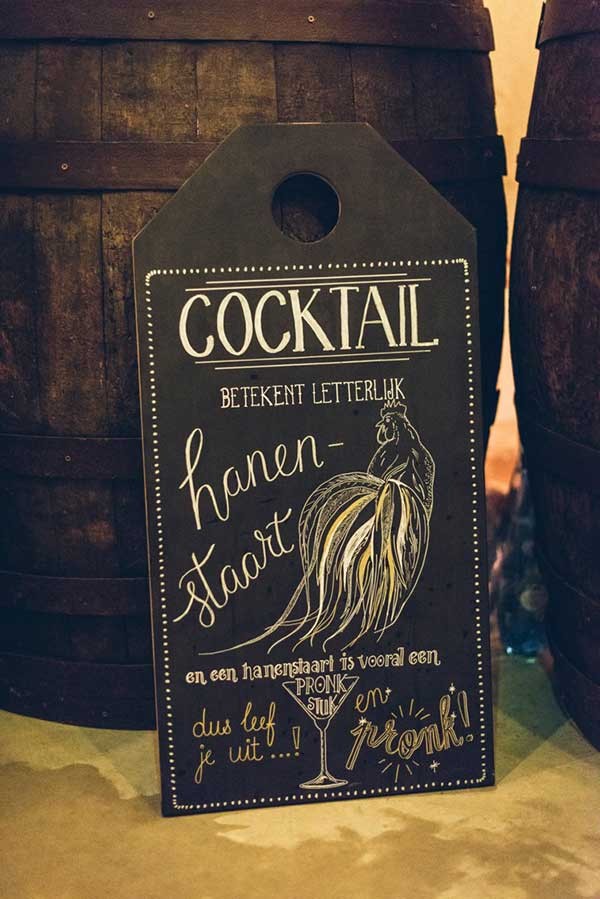 COCKTAIL
BETEKENT LETTERLIJK
hanen-
staart
en een hanenstaart is vooral een
PRONK
STUK
dus leef
je uit...!
en
pronk!